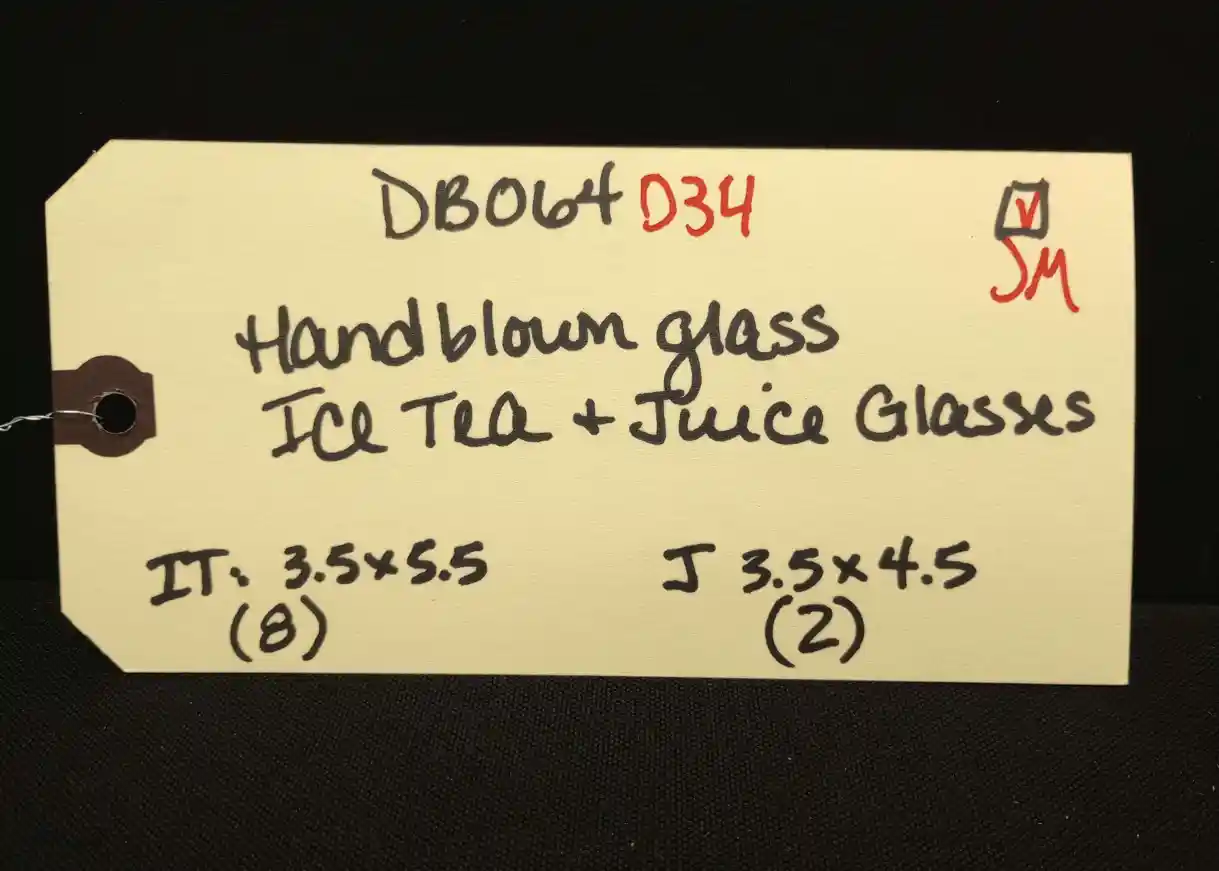 DB064 D34
V
JM
Handblown glass
Ice Tea + Juice Glasses
IT: 3.5x5.5
(8)
J 3.5x4.5
(2)